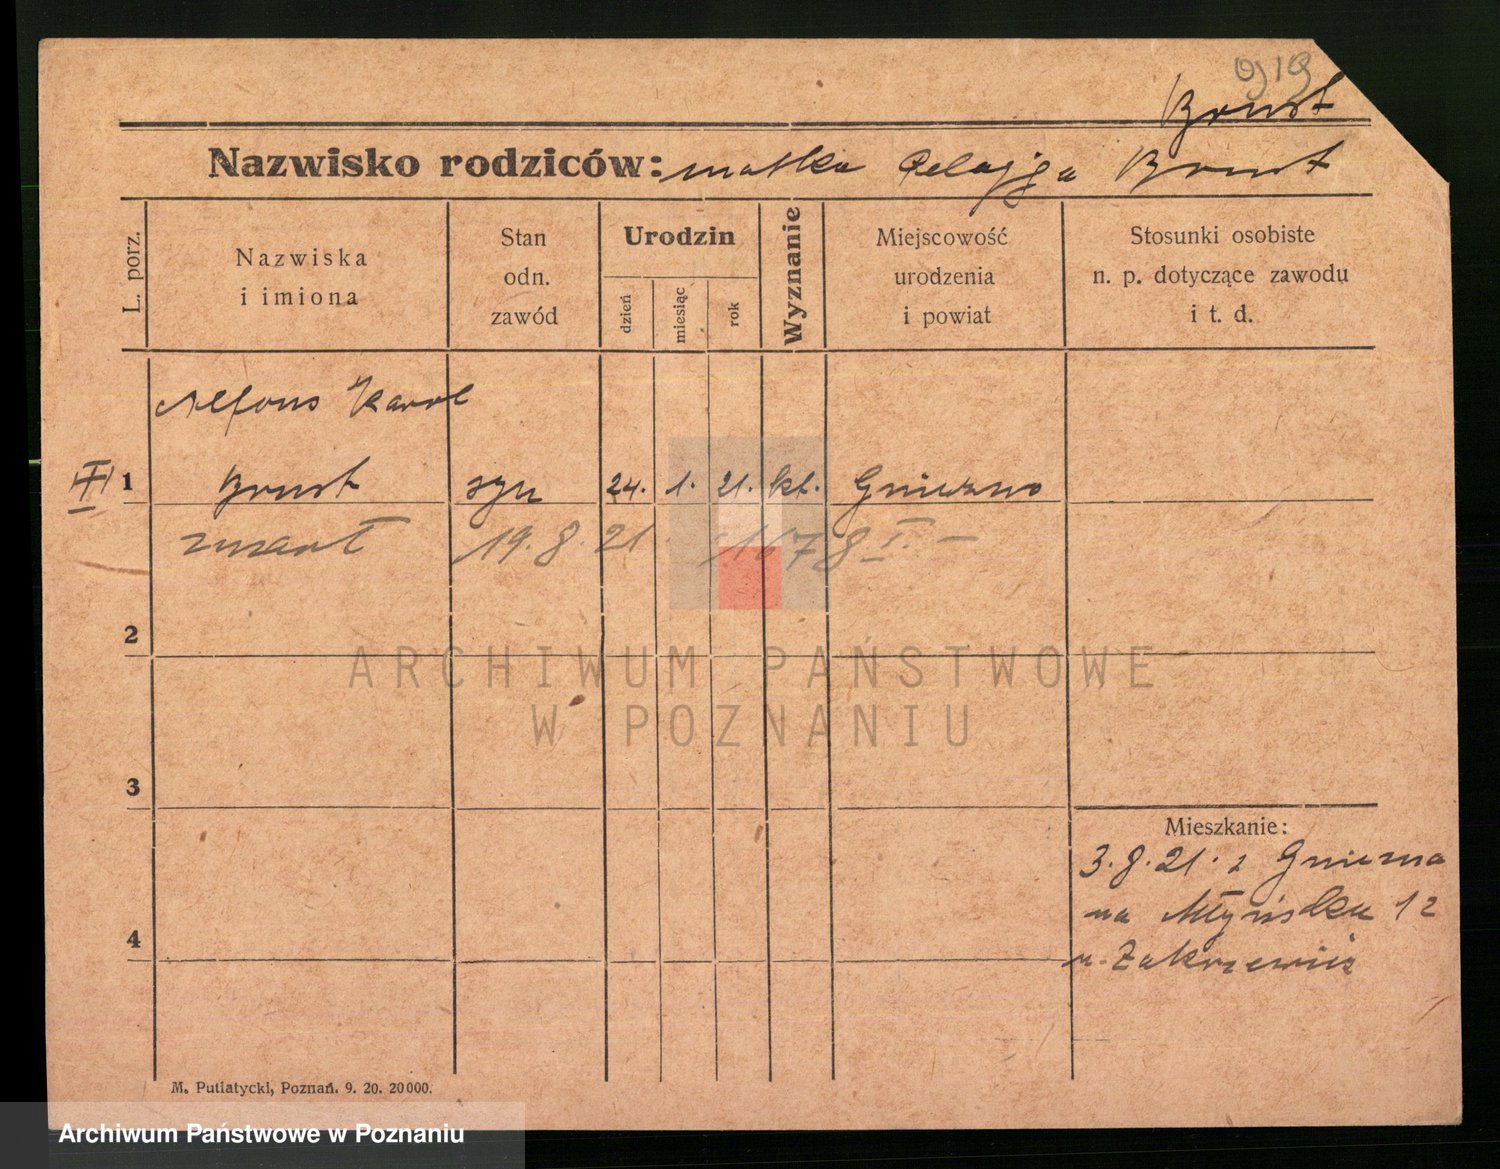 919
Brust
Nazwisko rodziców: matka Pelagja Brust
L. porz.
Nazwiska
i imiona
Stan
odn.
zawód
Urodzin
dzień
miesiąc
rok
Wyznanie
Miejscowość
urodzenia
i powiat
Stosunki osobiste
n. p. dotyczące zawodu
i t. d.
Alfons Karol
1 Brust syn 24. 1. 21. kt. Gniezno
zmarł 19.8.21. 1678 I. –
2
3
4
Mieszkanie:
3.8.21. z Gniezna
na Młyńska 12
u. Zakrzewicz
M. Putiatycki, Poznań. 9. 20. 20000.
ARCHIWUM PAŃSTWOWE
W POZNANIU
Archiwum Państwowe w Poznaniu